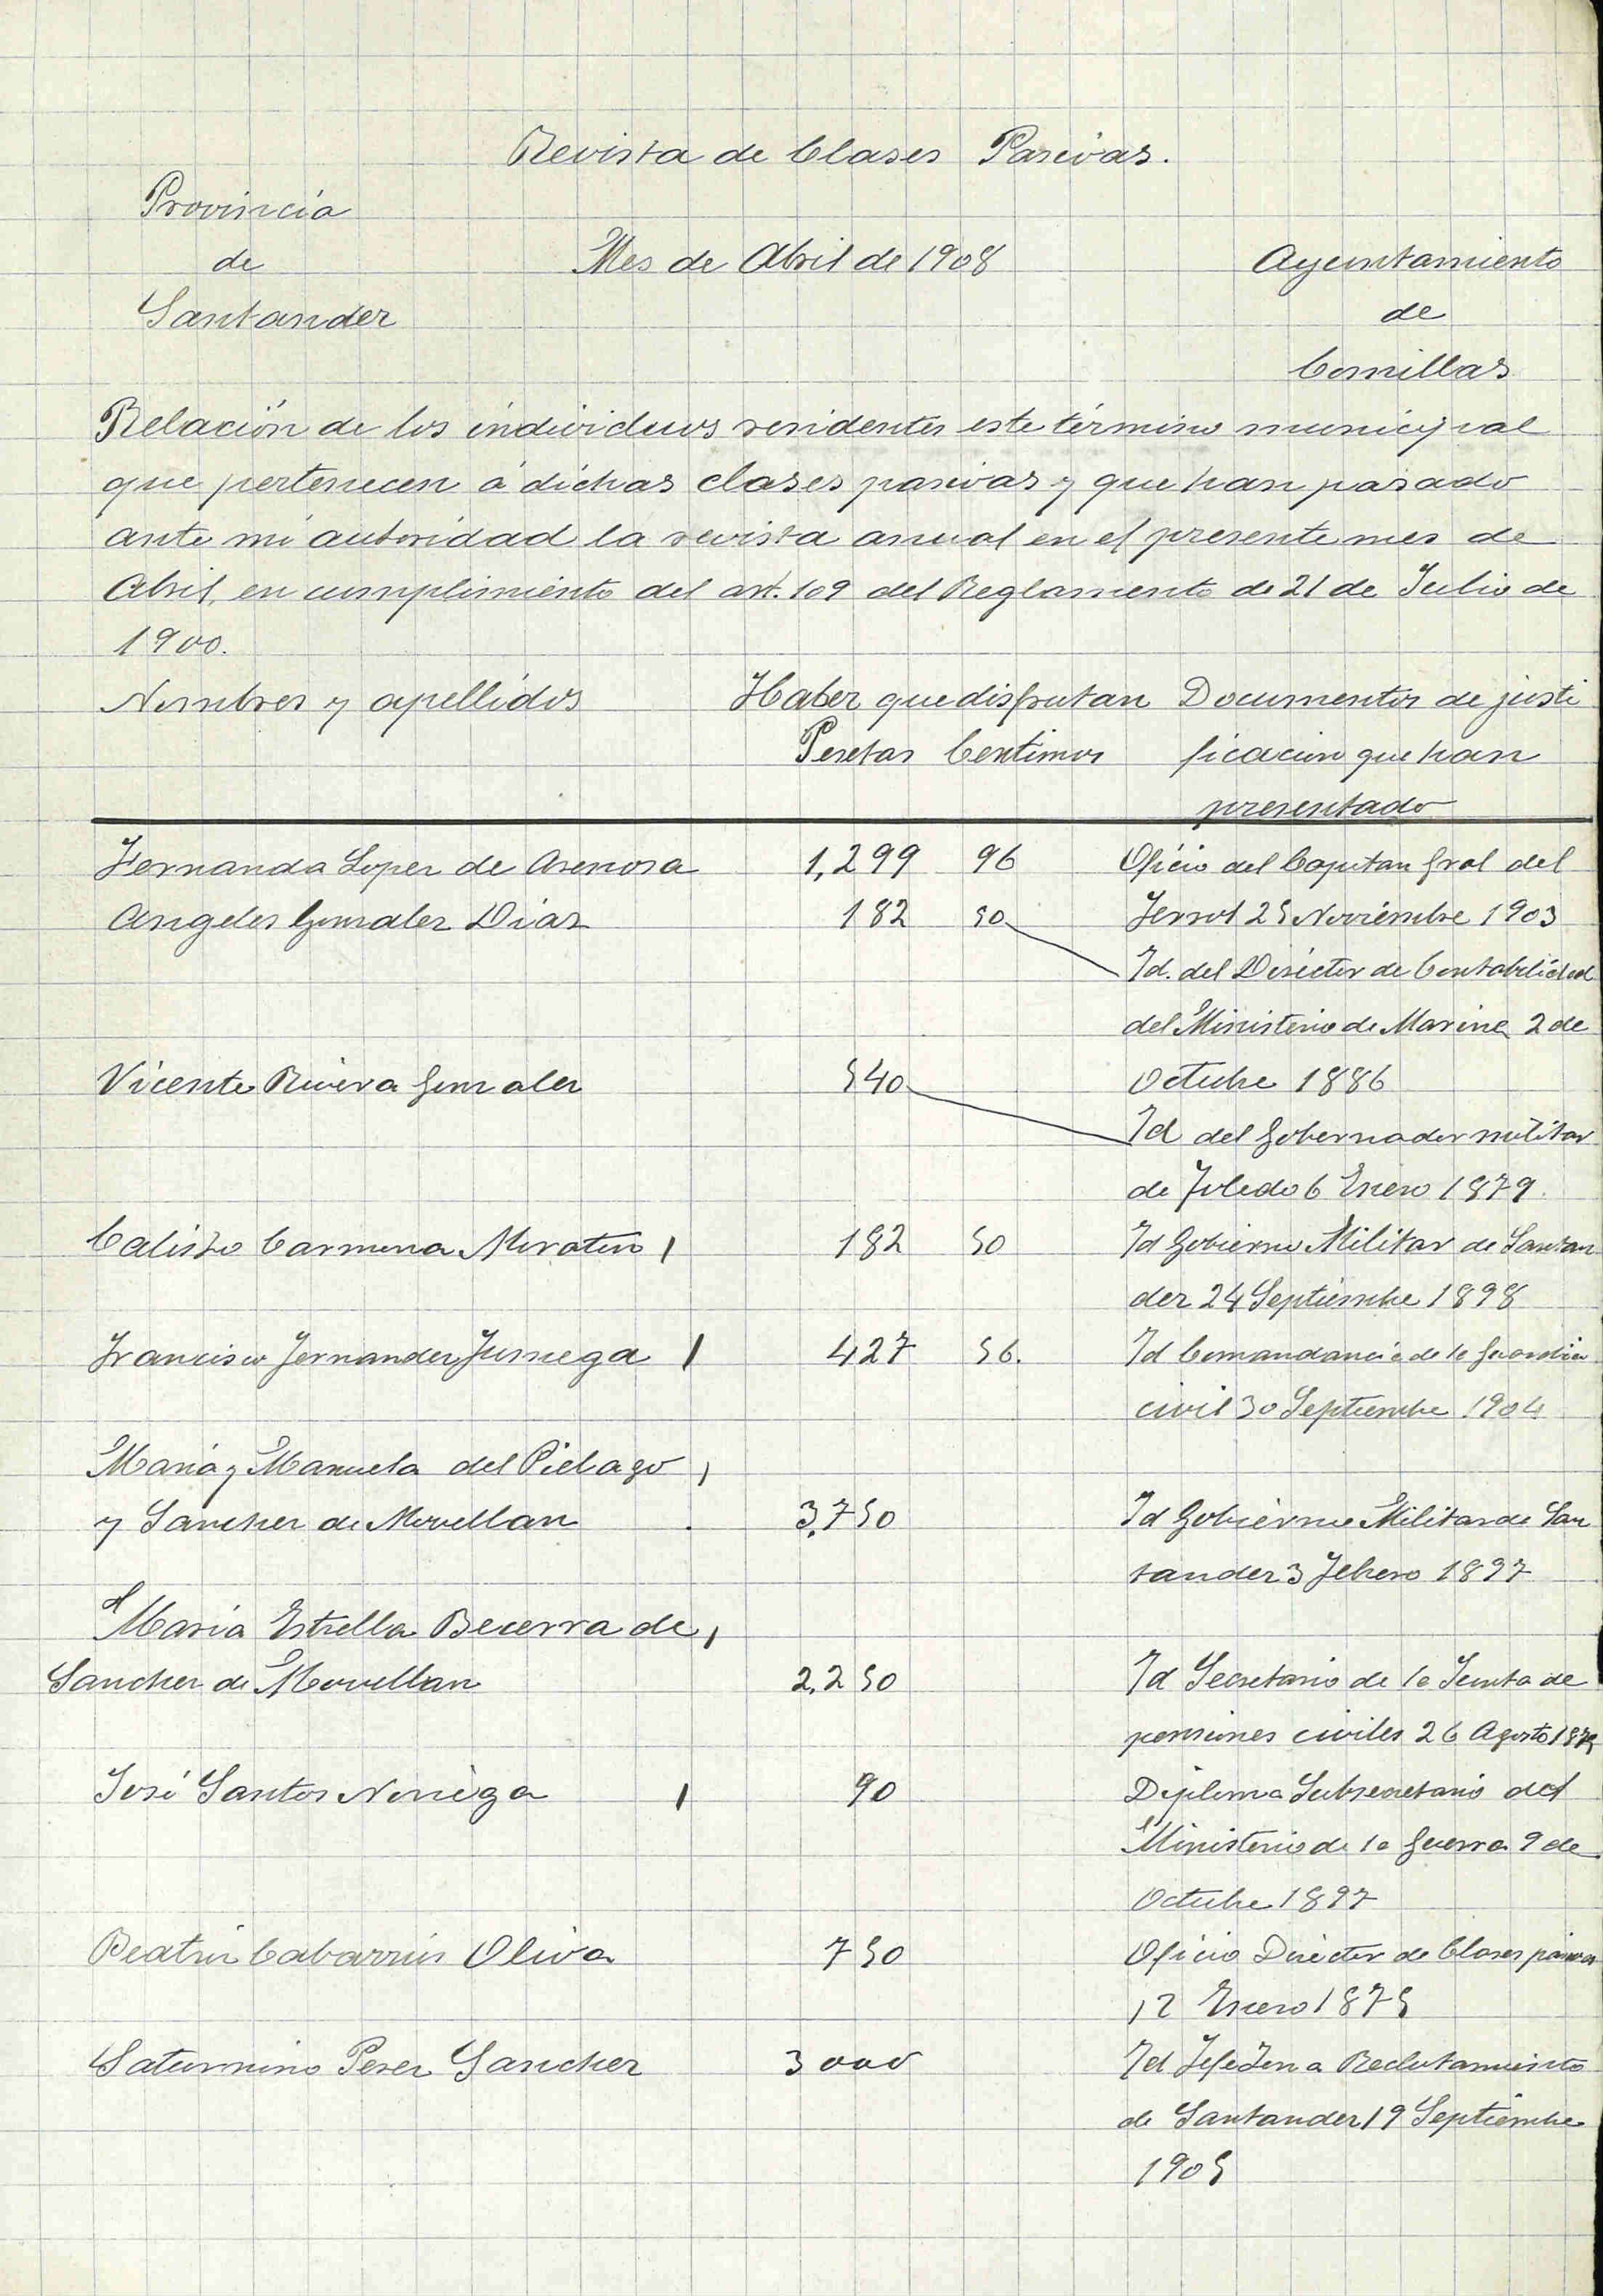 Revista de Clases Pasivas.
Provincia
de
Santander
Mes de Abril de 1908
Ayuntamiento
de
Comillas
Relación de los individuos residentes este término municipal
que pertenecen á dichas clases pasivas y que han pasado
ante mi autoridad la revista anual en el presente mes de
Abril, en cumplimiento del art. 109 del Reglamento de 21 de Julio de
1900.
Nombres y apellidos Haber que disfrutan Documentos de justi
Pesetas Centimos ficacion que han
presentado
Fernanda Loper de Arenosa 1,299 96 Oficio del Capitan Gral del
Angeles Gonzalez Diaz 182 50 Ferrol 25 Noviembre 1903
Id. del Director de Contabilidad
del Ministerio de Marina 2 de
Vicente Rivera Gonzalez 540 Octubre 1886
Id del Gobernador militar
de Toledo 6 Enero 1879.
Calisto Carmona Moratin 182 50 Id Gobierno Militar de Santan
der 24 Septiembre 1898
Francisco Fernandez 427 56. Id Comandancia de la Guardia
civil 30 Septiembre 1904
Maria y Manuela del Piélago
y Sanchez de Movellan 3,750 Id Gobierno Militar de San
tander 3 Febrero 1897
Maria Estrella Becerra de
Sanchez de Movellan 2,250 Id Secretario de la Junta de
pensiones civiles 26 Agosto
José Santos Noriega 90 Diploma Subsecretario del
Ministerio de la Guerra 9 de
Octubre 1897
Beatriz Cabarrús Oliva 750 Oficio Director de Clases pasivas
12 Enero 1875
Saturnino Perez Sanchez 3000 Id Jefe Zona Reclutamiento
de Santander 19 Septiembre
1905